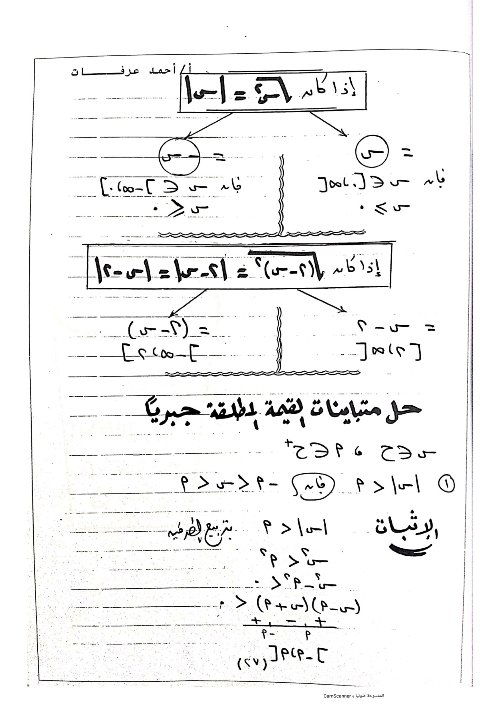 أ/أحمد عرفــــات
إذا كان √س² = |س|
= س
= -س
فإن س ∈ [٠،∞[
فإن س ∈ ]-∞،٠]
س ≥ ٠
س ≤ ٠
إذا كان √(٢-س)² = |٢-س| = |س-٢|
= س - ٢
= (٢ - س)
[٢،∞[
]-∞،٢]
حل متباينات القيمة المطلقة جبرياً
س ∈ ح ، م ∈ ح+
① |س| < م فإن -م < س < م
الإثبات
|س| < م بتربيع الطرفين
س² < م²
س² - م² < ٠
(س-م)(س+م) < ٠
+ - +
-م م
]-م،م[
(٢٧)
الممسوحة ضوئيا بـ CamScanner